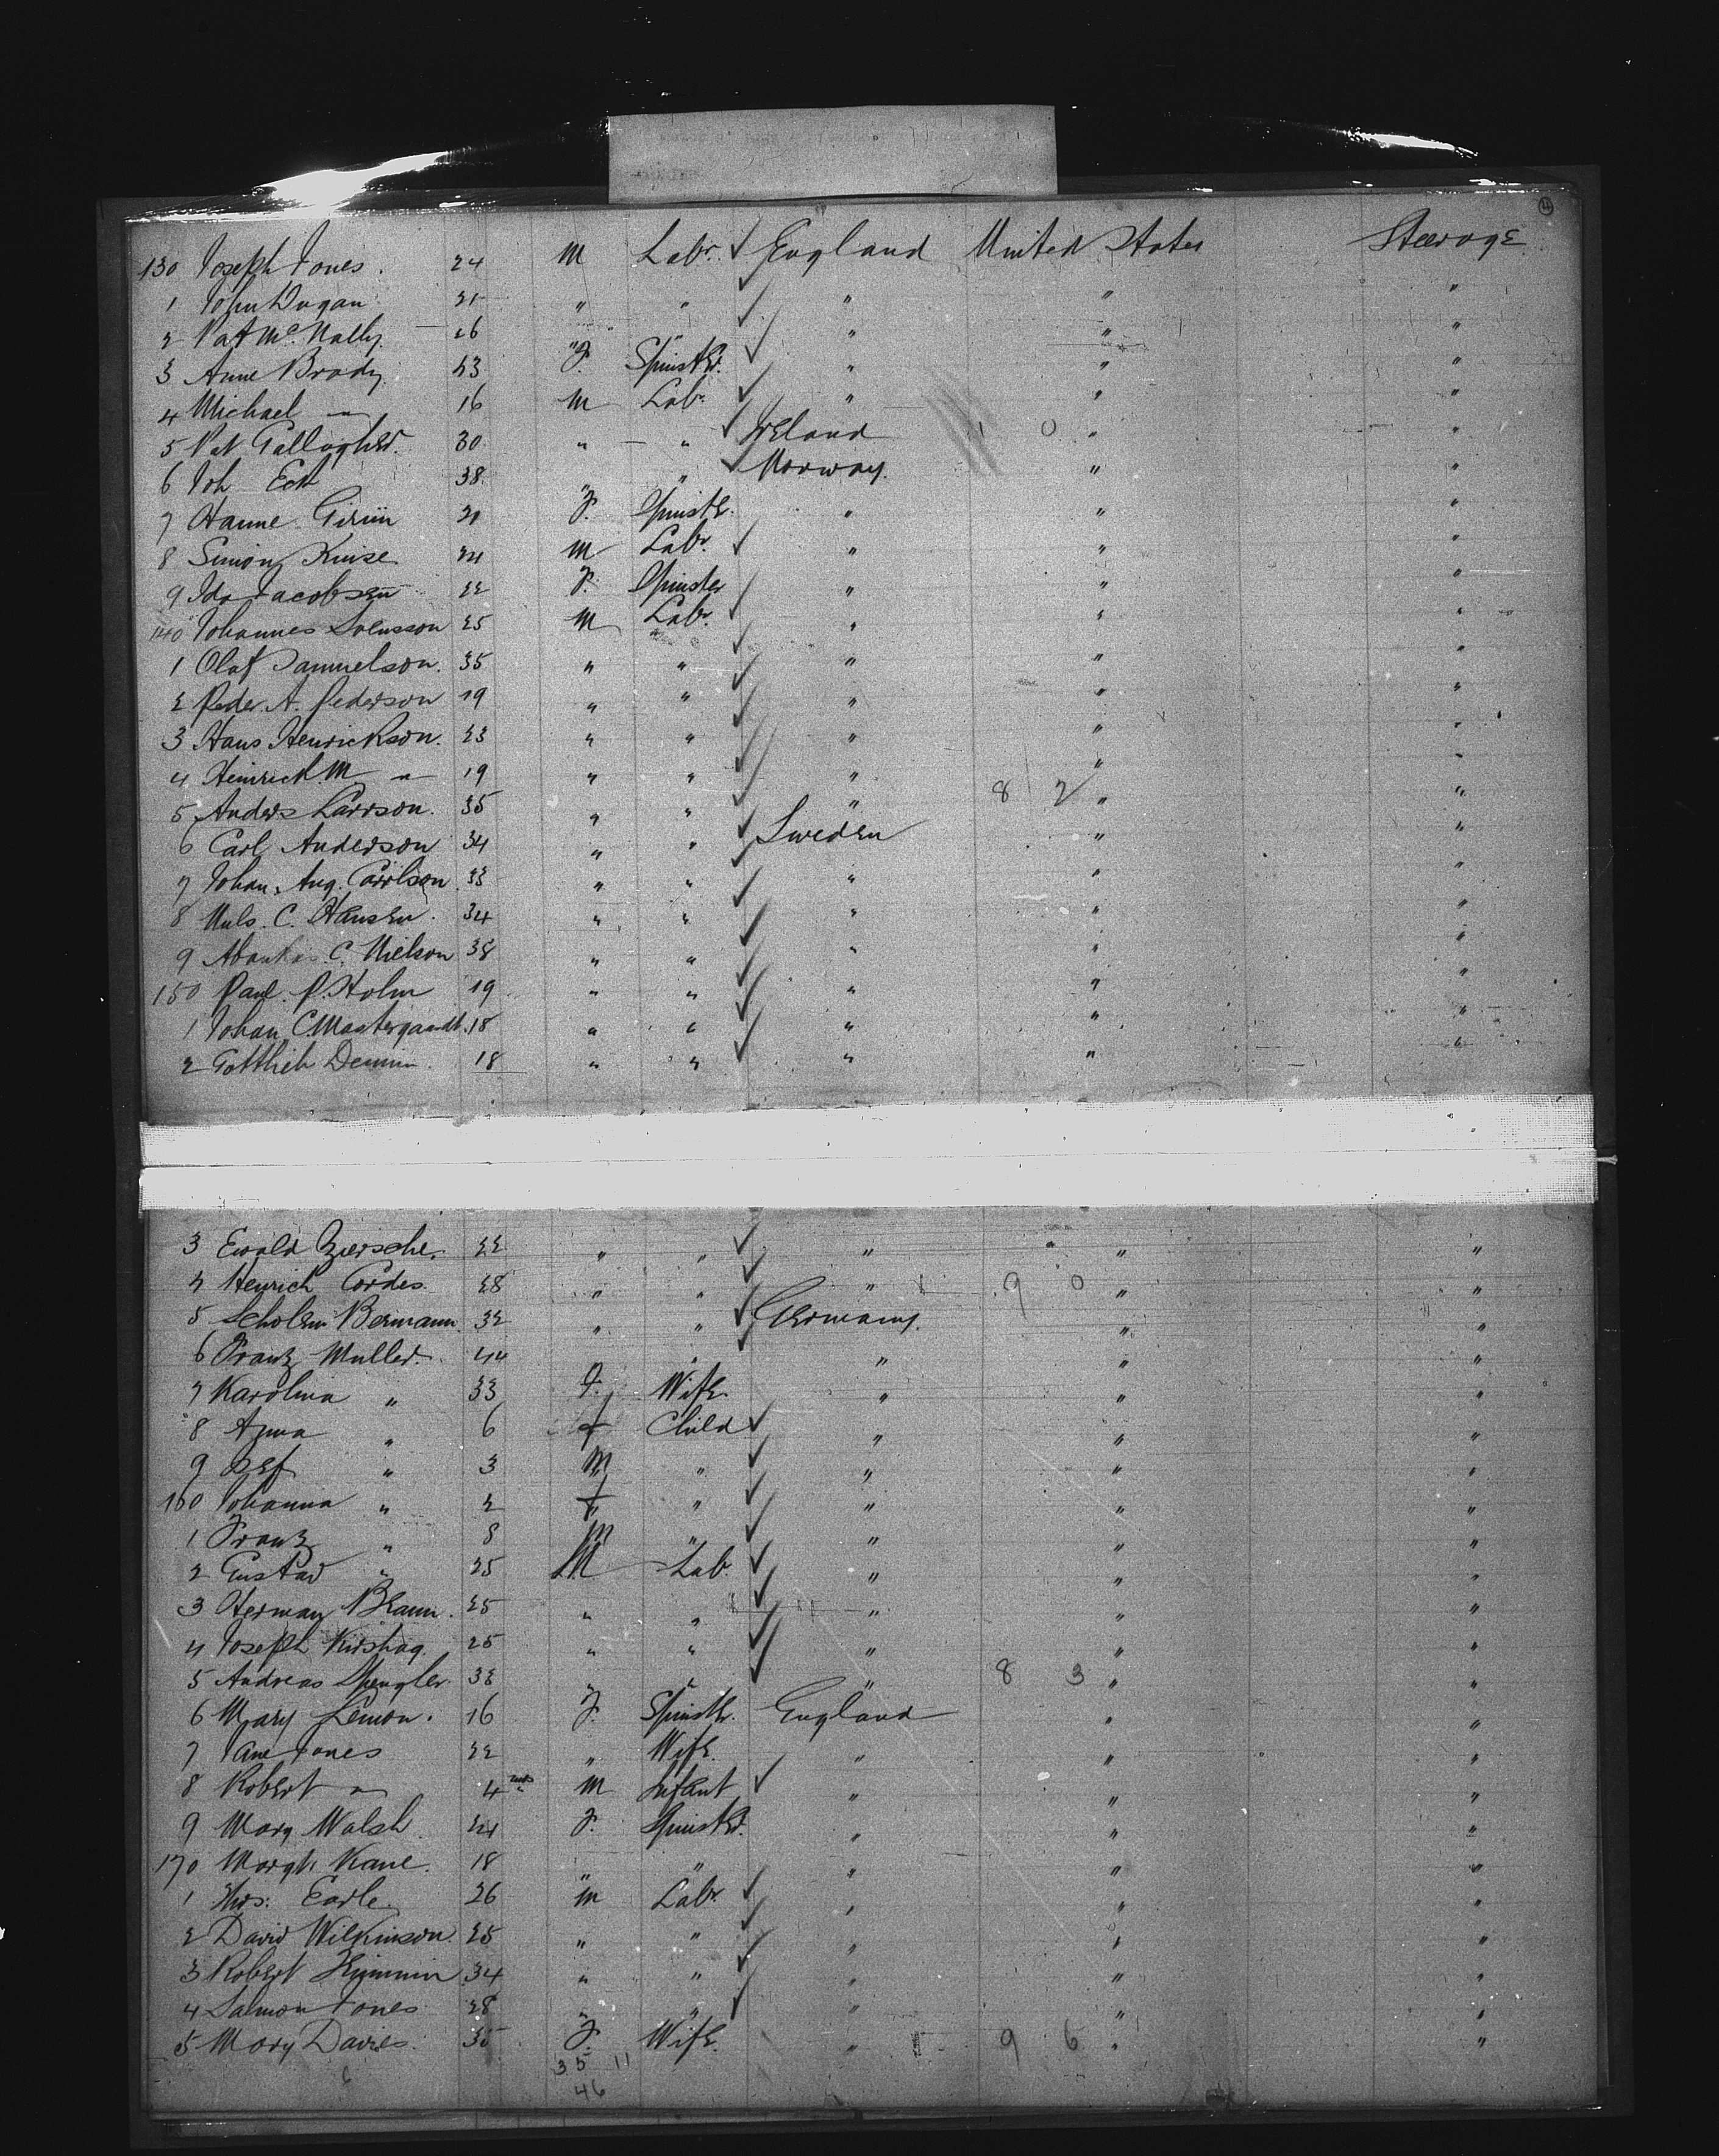 4
130 Joseph Jones. 24 M Labr. ✓ England United States Steerage
1 John Dugan 21 " " ✓ " " "
2 Pat McNally. 26 " " ✓ " " "
3 Anne Brady 23 F. Spinster. " " "
4 Michael " 16 M Labr. ✓ " " "
5 Pat Gallagher. 30 " " ✓ Ireland 1 0 " "
6 Joh 38 " " ✓ Norway. " "
7 Hanne 21 F. Spinstr. " " "
8 Simon 24 M Labr. ✓ " " "
9 Ida Jacobsen 22 F. Spinster " " "
140 Johannes Svensson 25 M Labr. ✓ " " "
1 Olaf Samuelson. 35 " " ✓ " " "
2 Peder. A. Pederson 19 " " ✓ " " "
3 Hans Henrickson. 23 " " ✓ " " "
4 Heinrich M " 19 " " ✓ " " "
5 Anders Larrson. 35 " " ✓ " 8 2 " "
6 Carl Anderson 34 " " ✓ Sweden " "
7 Johan. Aug. Carlson 33 " " ✓ " " "
8 Nuls. C. Hansen. 34 " " ✓ " " "
9 C. Nielson 38 " " ✓ " " "
150 Paul. P. Holm 19 " " ✓ " " "
1 Johan C. 18 " " ✓ " " "
2 Gottlieb 18 " " ✓ " " "
3 Ewald 22 " " ✓ " " "
4 Henrich Cordes. 28 " " ✓ " 9 0 " "
5 Scholem Bermann. 32 " " ✓ Germany. " "
6 Franz Muller. 44 " " ✓ " " "
7 Karolina " 33 F. Wife. " " "
8 Anna " 6 f Child ✓ " " "
9 " 3 M " ✓ " " "
160 Johanna " 2 f " ✓ " " "
1 Franz " 8 M " ✓ " " "
2 Gustav " 25 M Lab. ✓ " " "
3 Herman Braun. 25 " " ✓ " " "
4 Joseph 25 " " ✓ " " "
5 Andreas Spengler. 32 " " ✓ " 8 3 " "
6 Mary Lemon. 16 F. Spinstr. England " "
7 Jane Jones 22 " Wife. " " "
8 Robert " 4 mos M Infant ✓ " " "
9 Mary Walsh 24 F. Spinster. " " "
170 Margt Kane. 18 " " " " "
1 Thos. Earle. 26 M Labr. ✓ " " "
2 David Wilkinson. 25 " " ✓ " " "
3 Robert 34 " " ✓ " " "
4 Salmon Jones 28 " " ✓ " " "
5 Mary Davies. 35 F. Wife. " 9 6 " "
6 35 11
46